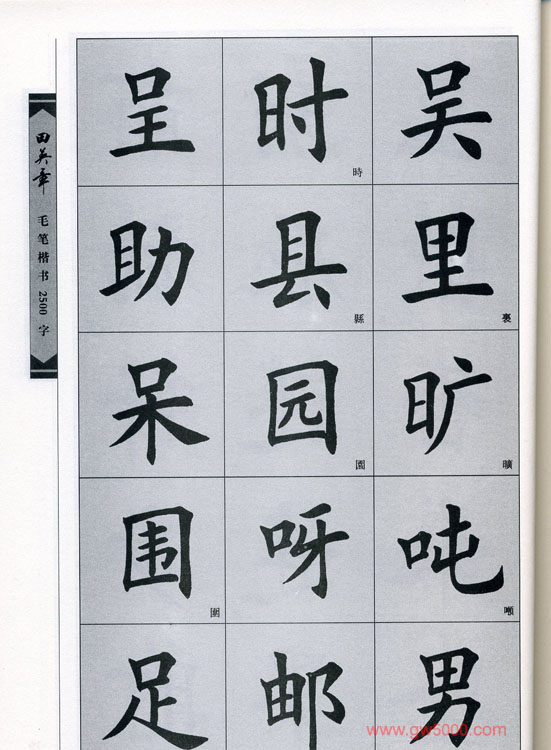 田英章
毛笔楷书2500字
呈 时 時 吴
助 县 縣 里 裏
呆 园 園 旷 曠
围 圍 呀 吨 噸
足 邮 男
www.gw5000.com